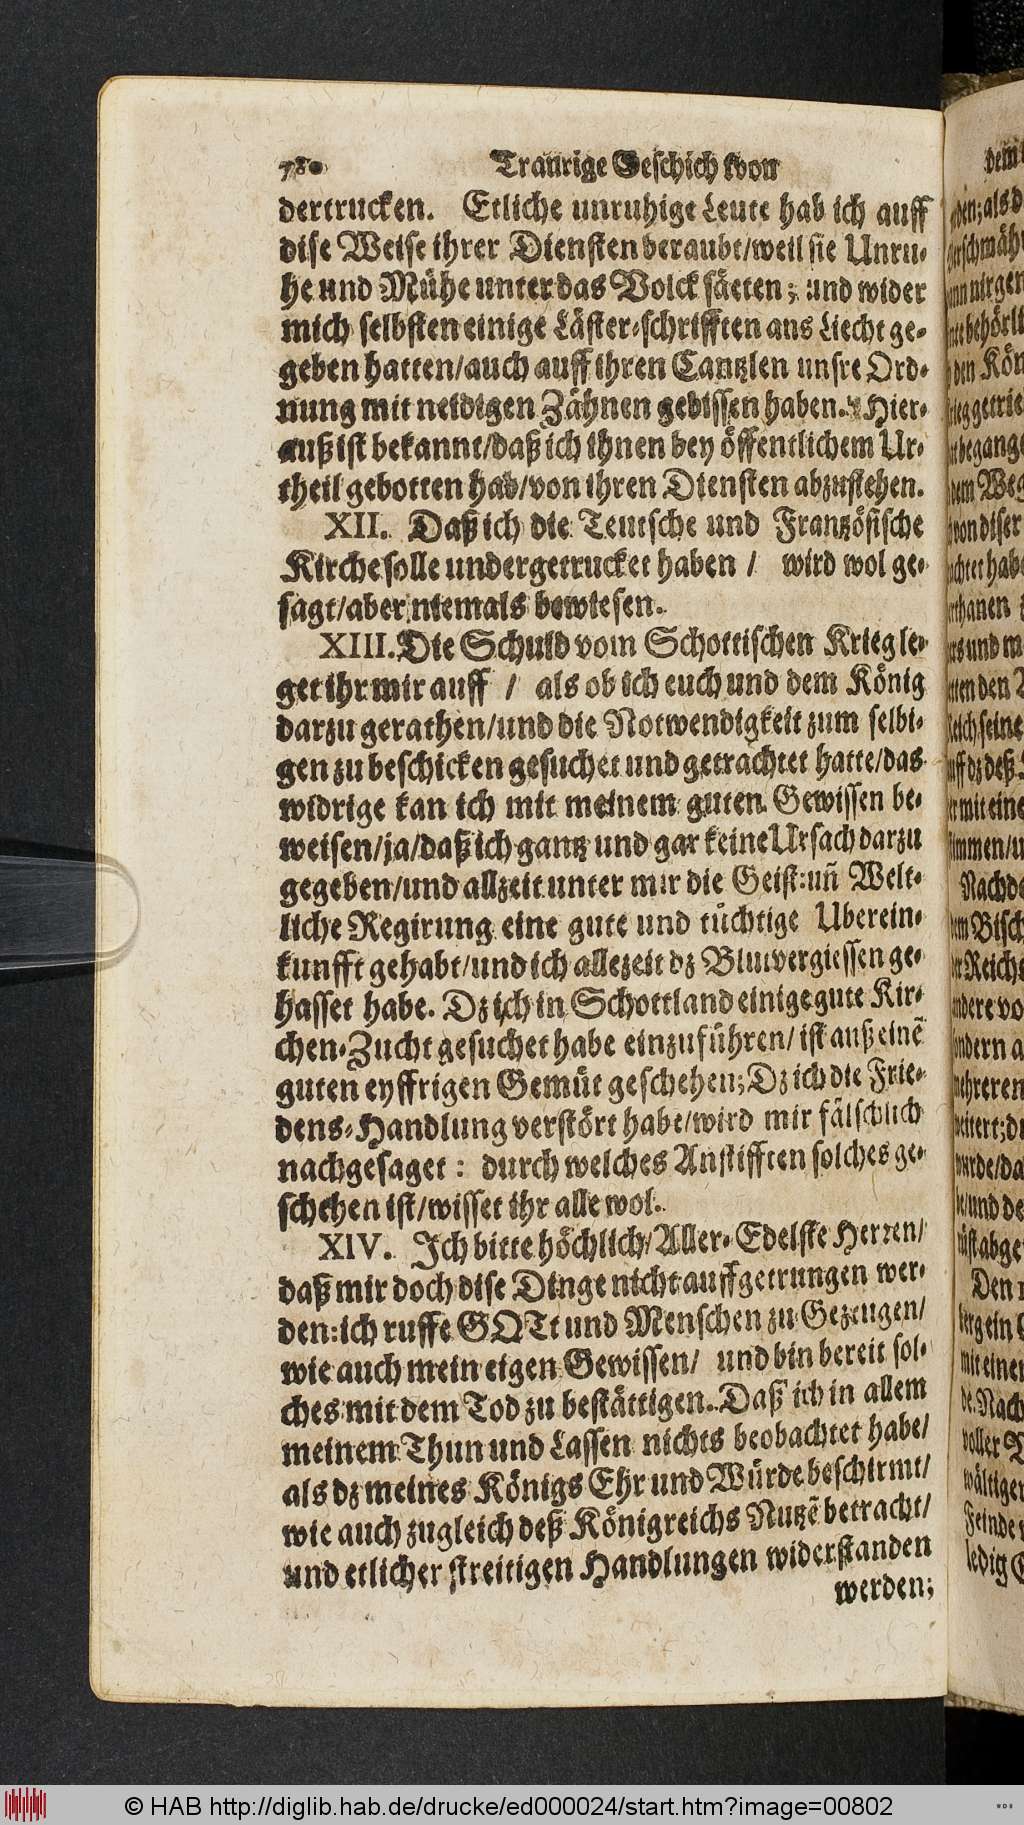 780 Traurige Geschich tvon
dertrucken. Etliche unruhige Leute hab ich auff
dise Weise ihrer Diensten beraubt/weil sie Unru-
he und Mühe unter das Volck säeten; und wider
mich selbsten einige Läster-schrifften ans Liecht ge-
geben hatten/auch auff ihren Cantzlen unsre Ord-
nung mit neidigen Zähnen gebissen haben. Hier-
auß ist bekannt/daß ich ihnen bey öffentlichem Ur-
theil gebotten hab/von ihren Diensten abzustehen.
XII. Daß ich die Teutsche und Frantzösische
Kirche solle undergetrucket haben / wird wol ge-
sagt/aber niemals bewiesen.
XIII. Die Schuld vom Schottischen Krieg le-
get ihr mir auff / als ob ich euch und dem König
darzu gerathen/und die Notwendigkeit zum selbi-
gen zu beschicken gesuchet und getrachtet hatte/das
widrige kan ich mit meinem guten Gewissen be-
weisen/ja/daß ich gantz und gar keine Ursach darzu
gegeben/und allzeit unter mir die Geist: uñ Welt-
liche Regirung eine gute und tüchtige Uberein-
kunfft gehabt/und ich allezeit dz Blutvergiessen ge-
hasset habe. Dz ich in Schottland einige gute Kir-
chen-Zucht gesuchet habe einzuführen/ ist auß einẽ
guten eyffrigen Gemüt geschehen; Dz ich die Frie-
dens-Handlung verstört habe/wird mir fälschlich
nachgesaget: durch welches Anstifften solches ge-
schehen ist/wisset ihr alle wol.
XIV. Ich bitte höchlich/Aller-Edelste Herren/
daß mir doch dise Dinge nicht auffgetrungen wer-
den: ich ruffe GOTt und Menschen zu Gezeugen/
wie auch mein eigen Gewissen/ und bin bereit sol-
ches mit dem Tod zu bestättigen. Daß ich in allem
meinem Thun und Lassen nichts beobachtet habe/
als dz meines Königs Ehr und Würde beschirmt/
wie auch zugleich deß Königreichs Nutzẽ betracht/
und etlicher streitigen Handlungen widerstanden
werden;
© HAB http://diglib.hab.de/drucke/ed000024/start.htm?image=00802